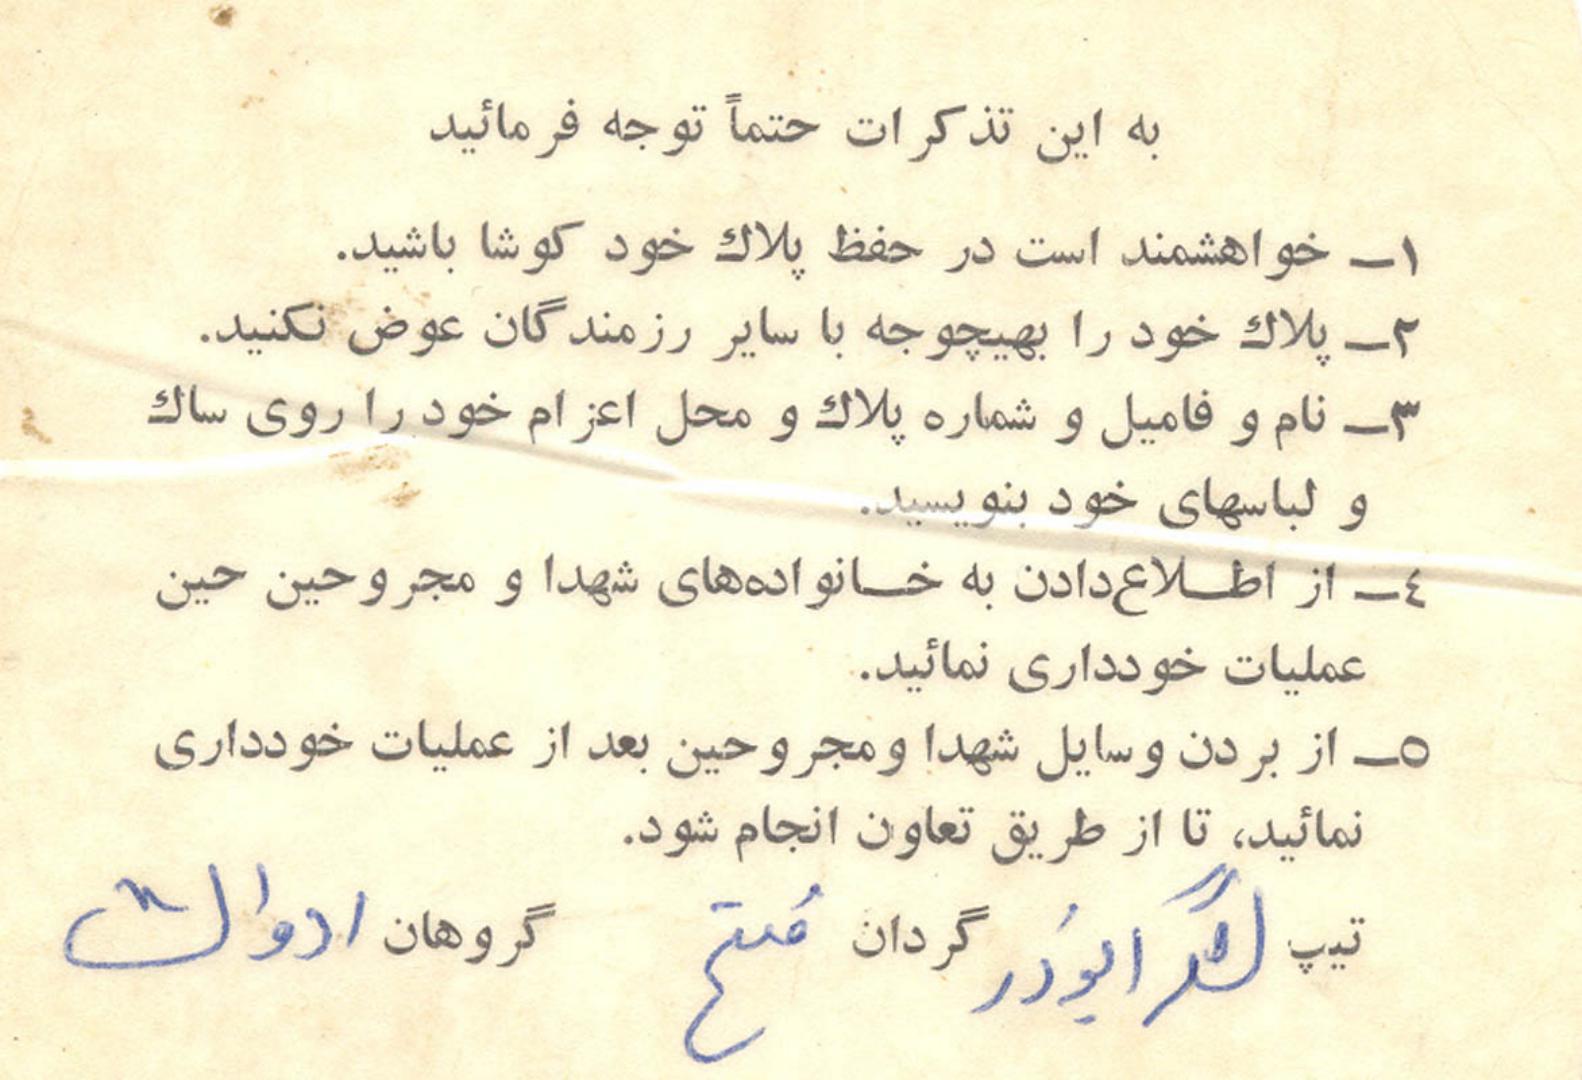 به این تذکرات حتماً توجه فرمائید
۱ــ خواهشمند است در حفظ پلاك خود کوشا باشید.
۲ــ پلاك خود را بهیچوجه با سایر رزمندگان عوض نکنید.
۳ــ نام و فامیل و شماره پلاك و محل اعزام خود را روی ساك
و لباسهای خود بنویسید.
٤ــ از اطــلاع‌دادن به خــانواده‌های شهدا و مجروحین حین
عملیات خودداری نمائید.
٥ــ از بردن وسایل شهدا ومجروحین بعد از عملیات خودداری
نمائید، تا از طریق تعاون انجام شود.
تیپ لشگر ابوذر گردان فتح گروهان